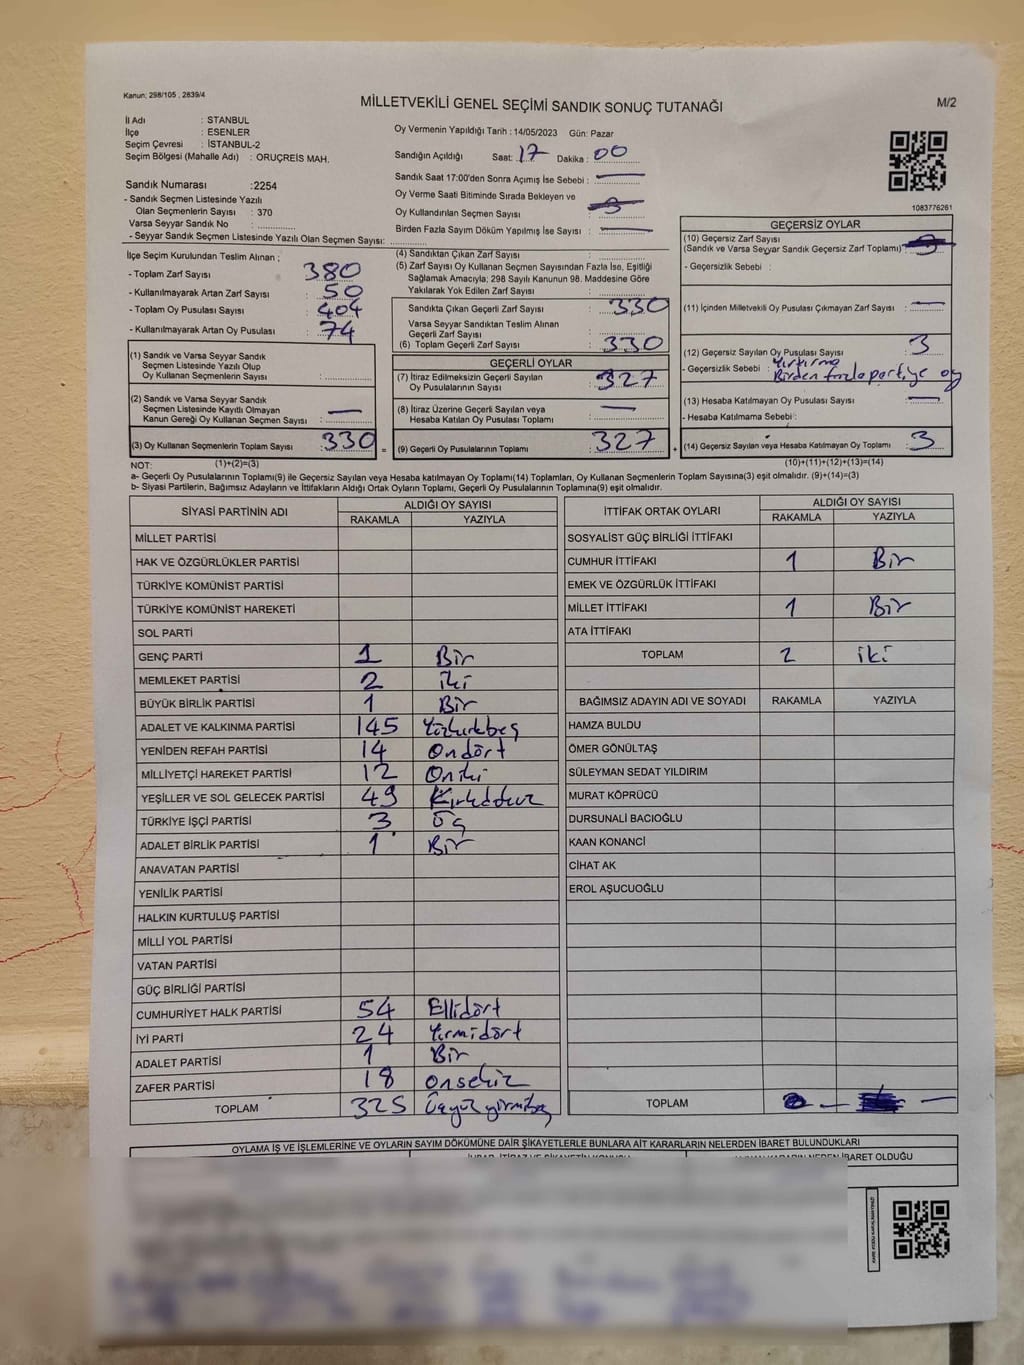 Kanun; 298/105 , 2839/4
MİLLETVEKİLİ GENEL SEÇİMİ SANDIK SONUÇ TUTANAĞI
M/2
İl Adı : STANBUL
İlçe : ESENLER
Seçim Çevresi : İSTANBUL-2
Seçim Bölgesi (Mahalle Adı) : ORUÇREİS MAH.
Sandık Numarası :2254
- Sandık Seçmen Listesinde Yazılı
Olan Seçmenlerin Sayısı : 370
Varsa Seyyar Sandık No :
- Seyyar Sandık Seçmen Listesinde Yazılı Olan Seçmen Sayısı:
Oy Vermenin Yapıldığı Tarih : 14/05/2023 Gün: Pazar
Sandığın Açıldığı Saat: 17 Dakika : 00
Sandık Saat 17:00'den Sonra Açımış İse Sebebi : —
Oy Verme Saati Bitiminde Sırada Bekleyen ve
Oy Kullandırılan Seçmen Sayısı :
Birden Fazla Sayım Döküm Yapılmış İse Sayısı : —
1083776261
İlçe Seçim Kurulundan Teslim Alınan ;
- Toplam Zarf Sayısı : 380
- Kullanılmayarak Artan Zarf Sayısı : 50
- Toplam Oy Pusulası Sayısı : 404
- Kullanılmayarak Artan Oy Pusulası : 74
(1) Sandık ve Varsa Seyyar Sandık
Seçmen Listesinde Yazılı Olup
Oy Kullanan Seçmenlerin Sayısı :
(2) Sandık ve Varsa Seyyar Sandık
Seçmen Listesinde Kayıtlı Olmayan
Kanun Gereği Oy Kullanan Seçmen Sayısı : —
(3) Oy Kullanan Seçmenlerin Toplam Sayısı : 330
(4) Sandıktan Çıkan Zarf Sayısı :
(5) Zarf Sayısı Oy Kullanan Seçmen Sayısından Fazla İse, Eşitliği
Sağlamak Amacıyla; 298 Sayılı Kanunun 98. Maddesine Göre
Yakılarak Yok Edilen Zarf Sayısı :
Sandıkta Çıkan Geçerli Zarf Sayısı : 330
Varsa Seyyar Sandıktan Teslim Alınan
Geçerli Zarf Sayısı :
(6) Toplam Geçerli Zarf Sayısı : 330
GEÇERLİ OYLAR
(7) İtiraz Edilmeksizin Geçerli Sayılan
Oy Pusulalarının Sayısı : 327
(8) İtiraz Üzerine Geçerli Sayılan veya
Hesaba Katılan Oy Pusulası Toplamı : —
= (9) Geçerli Oy Pusulalarının Toplamı : 327
GEÇERSİZ OYLAR
(10) Geçersiz Zarf Sayısı
(Sandık ve Varsa Seyyar Sandık Geçersiz Zarf Toplamı) :
- Geçersizlik Sebebi :
(11) İçinden Milletvekili Oy Pusulası Çıkmayan Zarf Sayısı : —
(12) Geçersiz Sayılan Oy Pusulası Sayısı : 3
- Geçersizlik Sebebi : Yırtırma
Birden fazla partiye oy
(13) Hesaba Katılmayan Oy Pusulası Sayısı : —
- Hesaba Katılmama Sebebi :
+ (14) Geçersiz Sayılan veya Hesaba Katılmayan Oy Toplamı : 3
NOT: (1)+(2)=(3) (10)+(11)+(12)+(13)=(14)
a- Geçerli Oy Pusulalarının Toplamı(9) ile Geçersiz Sayılan veya Hesaba katılmayan Oy Toplamı(14) Toplamları, Oy Kullanan Seçmenlerin Toplam Sayısına(3) eşit olmalıdır. (9)+(14)=(3)
b- Siyasi Partilerin, Bağımsız Adayların ve İttifakların Aldığı Ortak Oyların Toplamı, Geçerli Oy Pusulalarının Toplamına(9) eşit olmalıdır.
SİYASİ PARTİNİN ADI ALDIĞI OY SAYISI
RAKAMLA YAZIYLA
MİLLET PARTİSİ
HAK VE ÖZGÜRLÜKLER PARTİSİ
TÜRKİYE KOMÜNİST PARTİSİ
TÜRKİYE KOMÜNİST HAREKETİ
SOL PARTİ
GENÇ PARTİ 1 Bir
MEMLEKET PARTİSİ 2 iki
BÜYÜK BİRLİK PARTİSİ 1 Bir
ADALET VE KALKINMA PARTİSİ 145 Yüzkırkbeş
YENİDEN REFAH PARTİSİ 14 Ondört
MİLLİYETÇİ HAREKET PARTİSİ 12 Oniki
YEŞİLLER VE SOL GELECEK PARTİSİ 49 Kırkdokuz
TÜRKİYE İŞÇİ PARTİSİ 3 Üç
ADALET BİRLİK PARTİSİ 1 Bir
ANAVATAN PARTİSİ
YENİLİK PARTİSİ
HALKIN KURTULUŞ PARTİSİ
MİLLİ YOL PARTİSİ
VATAN PARTİSİ
GÜÇ BİRLİĞİ PARTİSİ
CUMHURİYET HALK PARTİSİ 54 Ellidört
İYİ PARTİ 24 Yirmidört
ADALET PARTİSİ 1 Bir
ZAFER PARTİSİ 18 onsekiz
TOPLAM 325 Üçyüz yirmibeş
İTTİFAK ORTAK OYLARI ALDIĞI OY SAYISI
RAKAMLA YAZIYLA
SOSYALİST GÜÇ BİRLİĞİ İTTİFAKI
CUMHUR İTTİFAKI 1 Bir
EMEK VE ÖZGÜRLÜK İTTİFAKI
MİLLET İTTİFAKI 1 Bir
ATA İTTİFAKI
TOPLAM 2 iki
BAĞIMSIZ ADAYIN ADI VE SOYADI RAKAMLA YAZIYLA
HAMZA BULDU
ÖMER GÖNÜLTAŞ
SÜLEYMAN SEDAT YILDIRIM
MURAT KÖPRÜCÜ
DURSUNALİ BACIOĞLU
KAAN KONANCİ
CİHAT AK
EROL AŞUCUOĞLU
TOPLAM — —
OYLAMA İŞ VE İŞLEMLERİNE VE OYLARIN SAYIM DÖKÜMÜNE DAİR ŞİKAYETLERLE BUNLARA AİT KARARLARIN NELERDEN İBARET BULUNDUKLARI
İBARET OLDUĞU